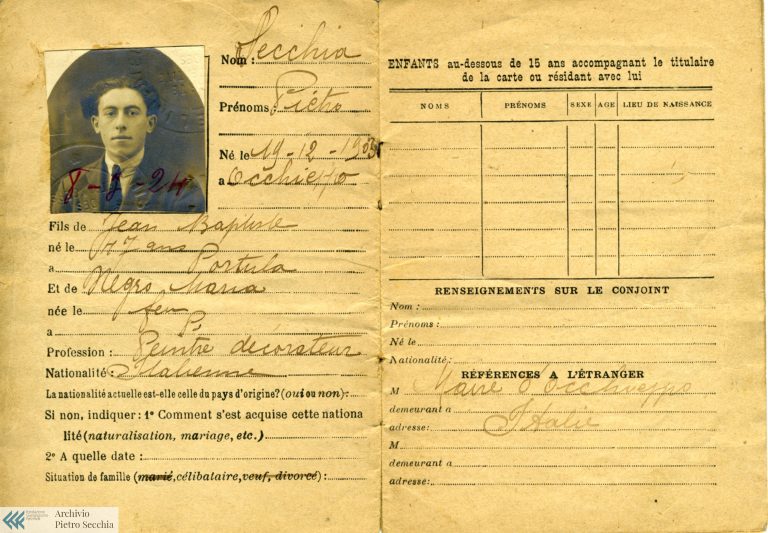 Nom: Secchia
Prénoms: Piétro
Né le 19-12-1903
a Occhieppo
8-8-24
Fils de Jean Baptiste
né le 47 ans
a Portula
Et de Negro Maria
née le feu
a
Profession: Peintre décorateur
Nationalité: Italienne
La nationalité actuelle est-elle celle du pays d'origine? (oui ou non):
Si non, indiquer: 1º Comment s'est acquise cette nationa
lité (naturalisation, mariage, etc.)
2º A quelle date:
Situation de famille (marié, célibataire, veuf, divorcé):
Archivio
Pietro Secchia
ENFANTS au-dessous de 15 ans accompagnant le titulaire
de la carte ou résidant avec lui
NOMS PRÉNOMS SEXE AGE LIEU DE NAISSANCE
RENSEIGNEMENTS SUR LE CONJOINT
Nom:
Prénoms:
Né le
Nationalité:
RÉFÉRENCES A L'ÉTRANGER
M Maire d'Occhieppo
demeurant a
adresse: Italie
M
demeurant a
adresse: